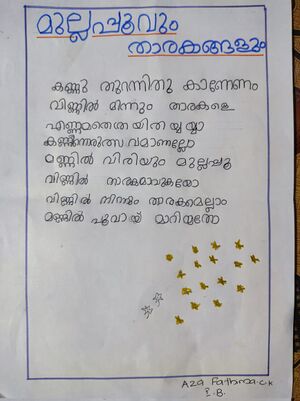 മുല്ലപ്പൂവും
താരകങ്ങളും
കണ്ണു തുറന്നിതു കാണേണം
വിണ്ണിൽ മിന്നും താരകളെ
എണ്ണമതെത്ര
കണ്ണിന്നുത്സവമാണല്ലോ
മണ്ണിൽ വിരിയും മുല്ലപ്പൂ
വിണ്ണിൽ താരകമാവുകയോ
വിണ്ണിൽ നിന്നും താരകമെല്ലാം
മണ്ണിൽ പൂവായ് മാറിന്നതോ
Aza Fathima.C.K
I.B.